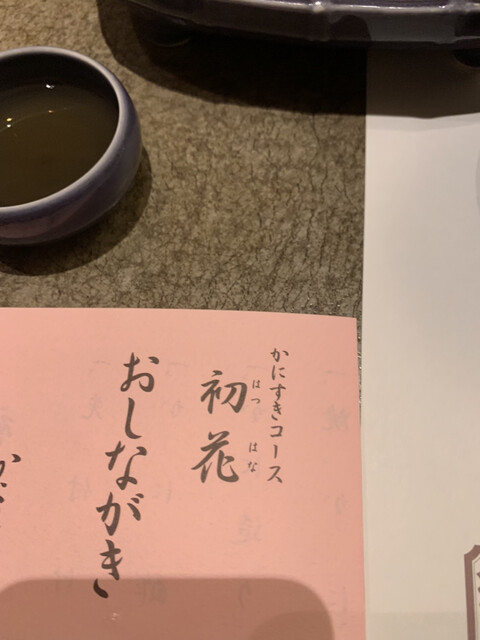 かにすきコース
初花
はつはな
おしながき